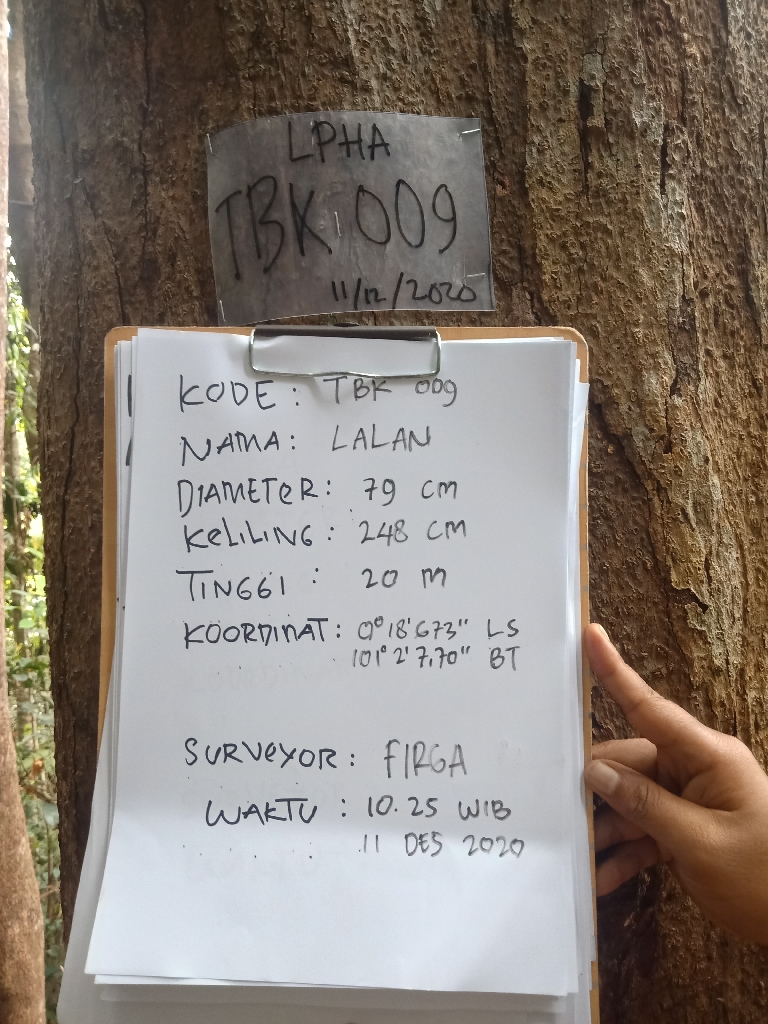 LPHA
TBK 009
11/12/2020
KODE : TBK 009
NAMA : LALAN
DIAMETER : 79 CM
KELILING : 248 CM
TINGGI : 20 M
KOORDINAT : 0° 18' 673" LS
101° 2' 7,70" BT
SURVEYOR : FIRGA
WAKTU : 10.25 WIB
11 DES 2020